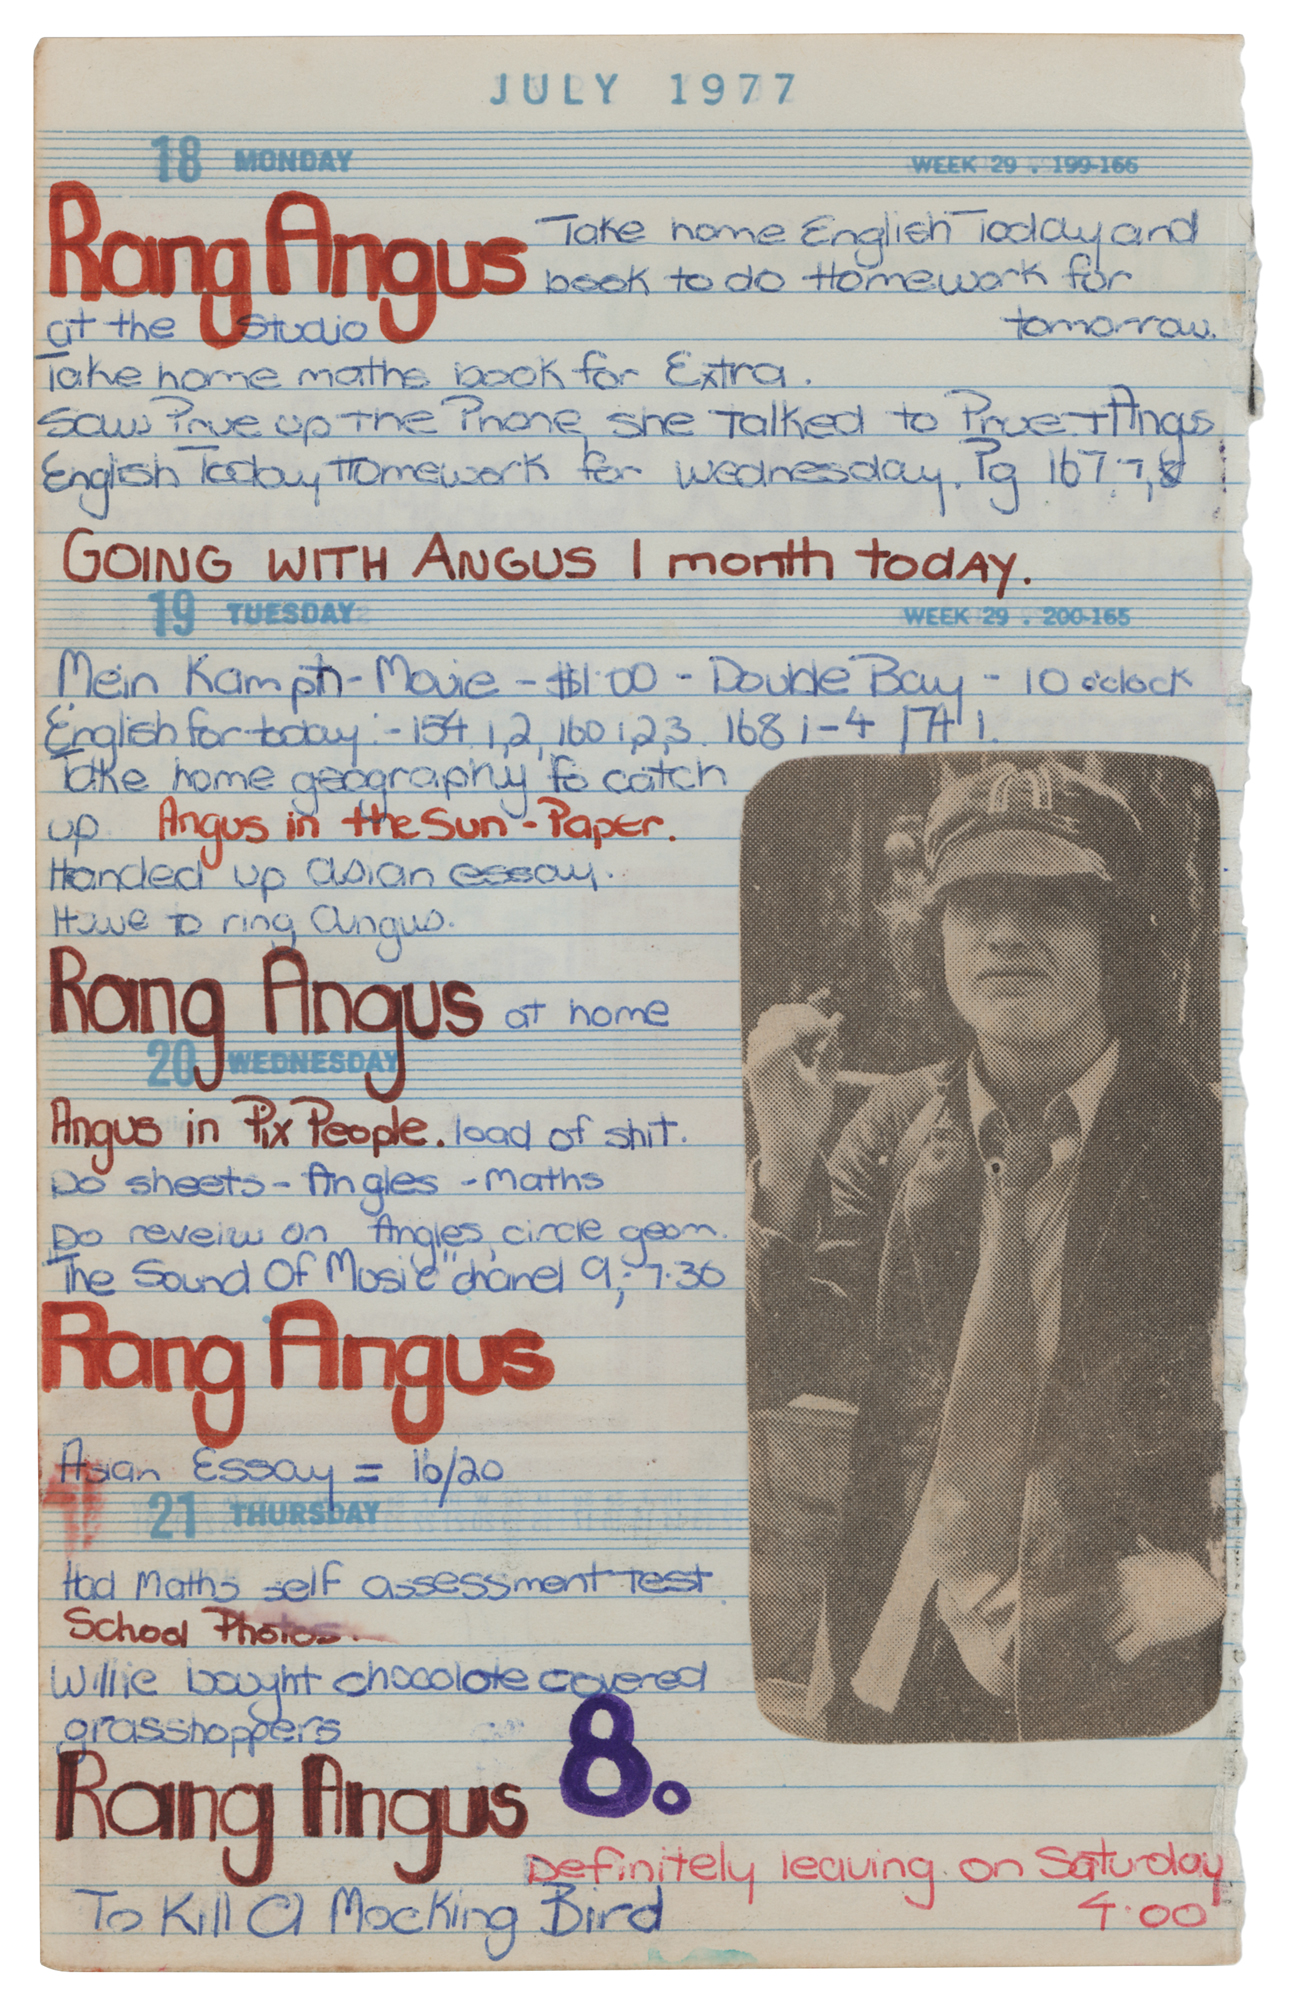 JULY 1977
18 MONDAY WEEK 29 . 199-166
Rang Angus Take home English Today and
book to do Homework for
at the Studio tomorrow.
Take home maths book for Extra.
Saw Prue up the Phone, she talked to Prue + Angus
English Today Homework for Wednesday. Pg 167. 7, 8
GOING WITH ANGUS 1 month today.
19 TUESDAY WEEK 29 . 200-165
Mein Kamph - Movie - $1.00 - Double Bay - 10 o'clock
English for today :- 154 1,2, 160 1,2,3. 168 1-4 174 1.
Take home geography to catch
up Angus in the Sun - Paper.
Handed up asian essay.
Have to ring Angus.
Rang Angus at home
20 WEDNESDAY
Angus in Pix People. load of shit.
Do sheets - Angles - Maths
Do reveiw on Angles, circle geom.
"The Sound Of Music" chanel 9, 7.30
Rang Angus
Asian Essay = 16/20
21 THURSDAY
Had Maths self assessment test
School Photos.
Willie bought chocolate covered
grasshoppers
Rang Angus 8.
Definitely leaving on Saturday
4.00
To Kill A Mocking Bird